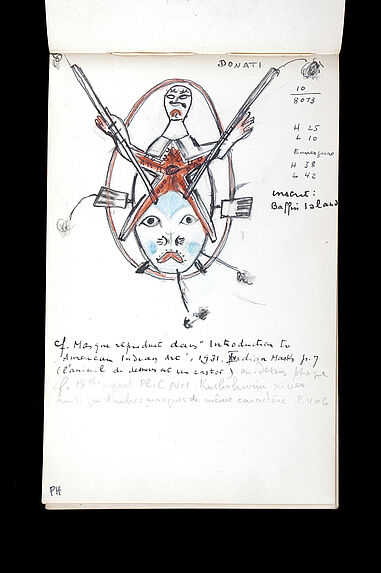 DONATI
10
8073
H 25
L 10
Envergure
H 38
L 42
inscrit:
Baffin Island
cf. Masque reproduit dans "Introduction to
American Indian Art", 1931. Indian Masks p. 7
(l'animal du dessus est un castor) au-dessus
cf. 18th report Pl. C No1 Kuskokwim river
ainsi que d'autres masques de même caractère P. 406
PH